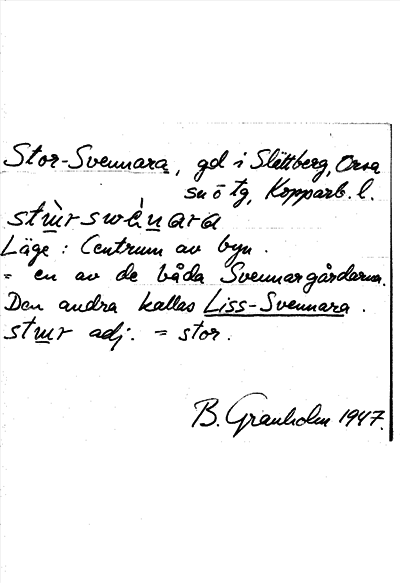 Stor-Svennara, gd i Slättberg, Orsa
sn ö tg, Kopparb. l.
stɯ̀rswὲnara
Läge : Centrum av byn .
= en av de båda Svennargårdarna.
Den andra kallas Liss-Svennara .
stɯr adj. = stor .
B. Granholm 1947.